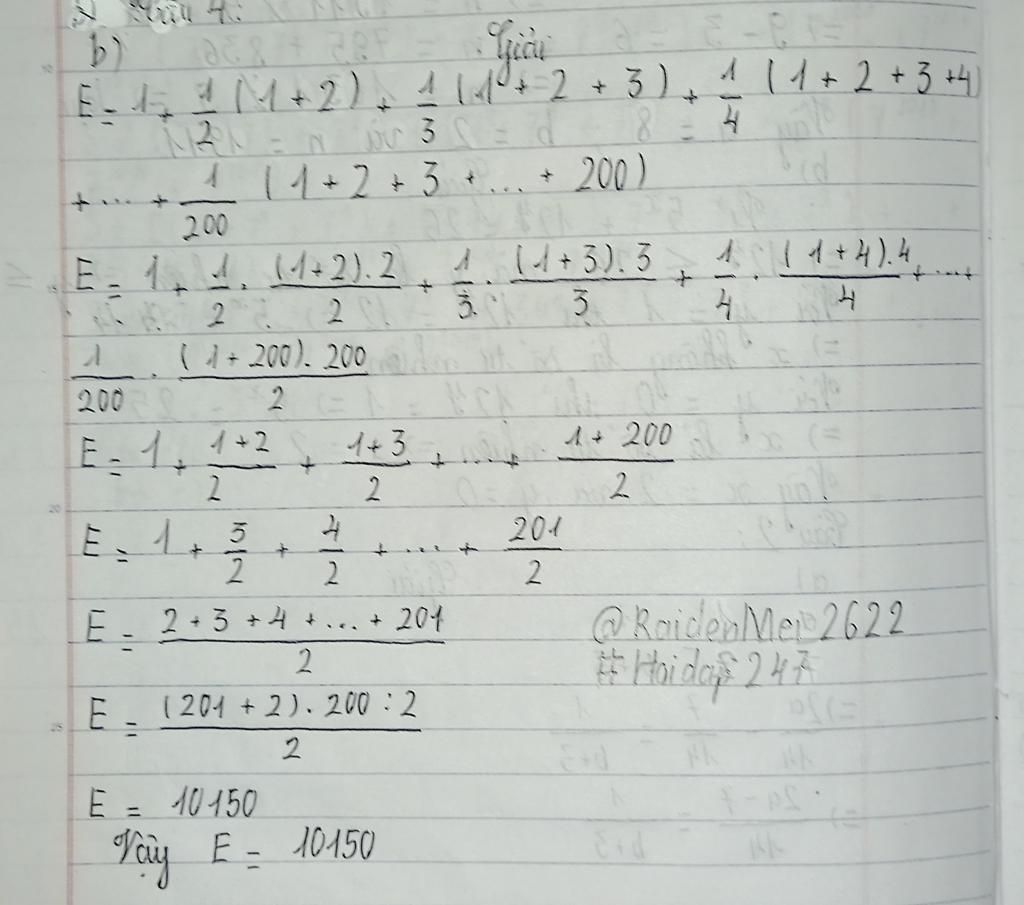 Câu 4:
b) Giải
E = 1 + 1/2 (1 + 2) + 1/3 (1 + 2 + 3) + 1/4 (1 + 2 + 3 + 4)
+ ... + 1/200 (1 + 2 + 3 + ... + 200)
E = 1 + 1/2 . (1+2).2/2 + 1/3 . (1+3).3/3 + 1/4 . (1+4).4/4 + ... +
1/200 . (1+200).200/2
E = 1 + 1+2/2 + 1+3/2 + ... + 1+200/2
E = 1 + 3/2 + 4/2 + ... + 201/2
E = 2+3+4+...+201/2 @RaidenMei2622
#Hoidap247
E = (201+2).200:2/2
E = 10150
Vậy E = 10150